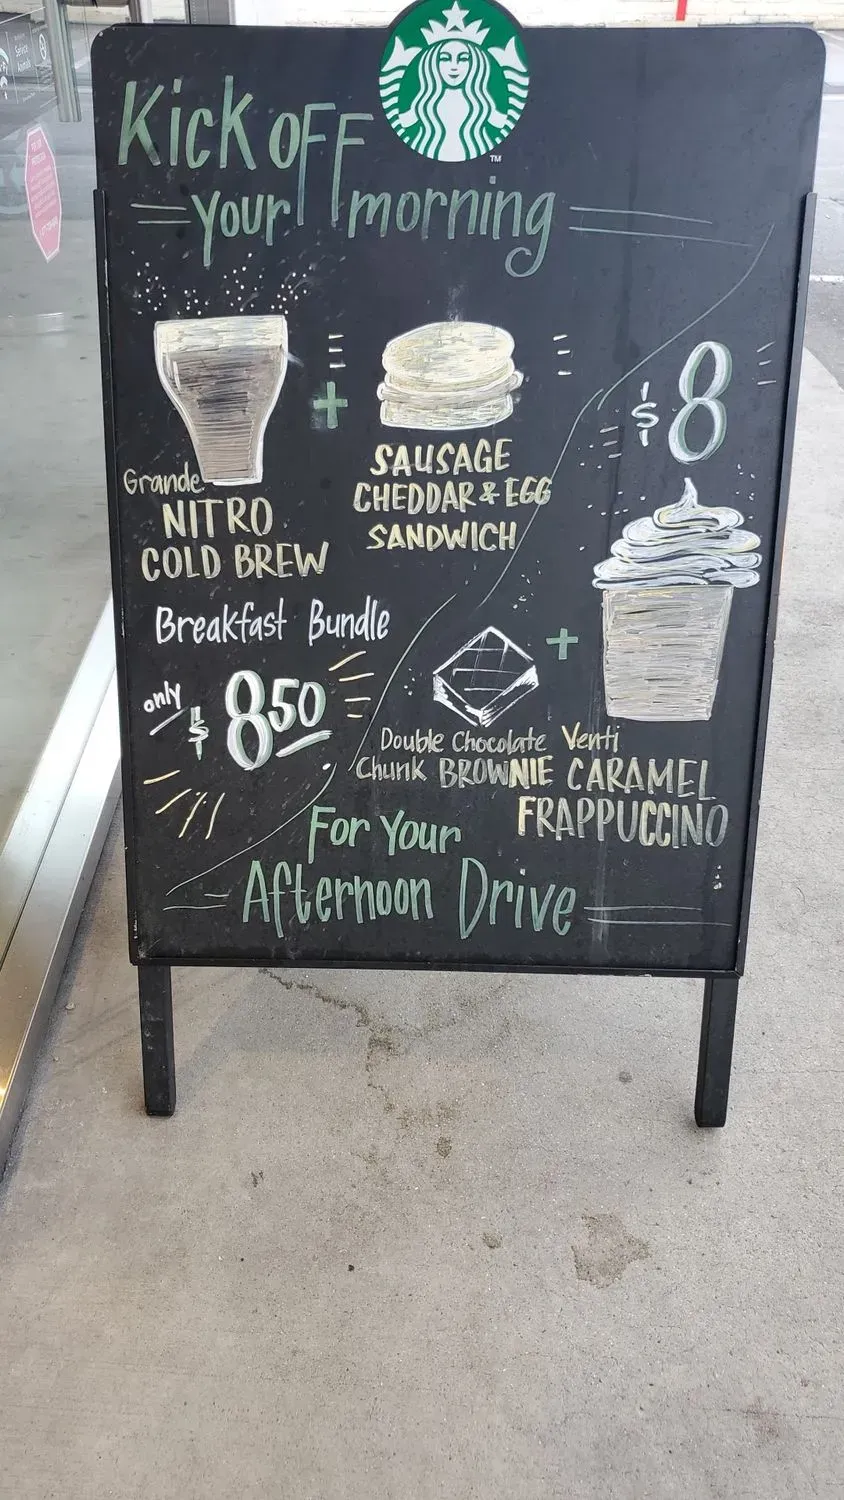 Kick off
Your morning
Grande
NITRO
COLD BREW
+
SAUSAGE
CHEDDAR & EGG
SANDWICH
Breakfast Bundle
only $8.50
$8
+
Double Chocolate
Chunk BROWNIE
Venti
CARAMEL
FRAPPUCCINO
For Your
Afternoon Drive
TM
Service
Animals